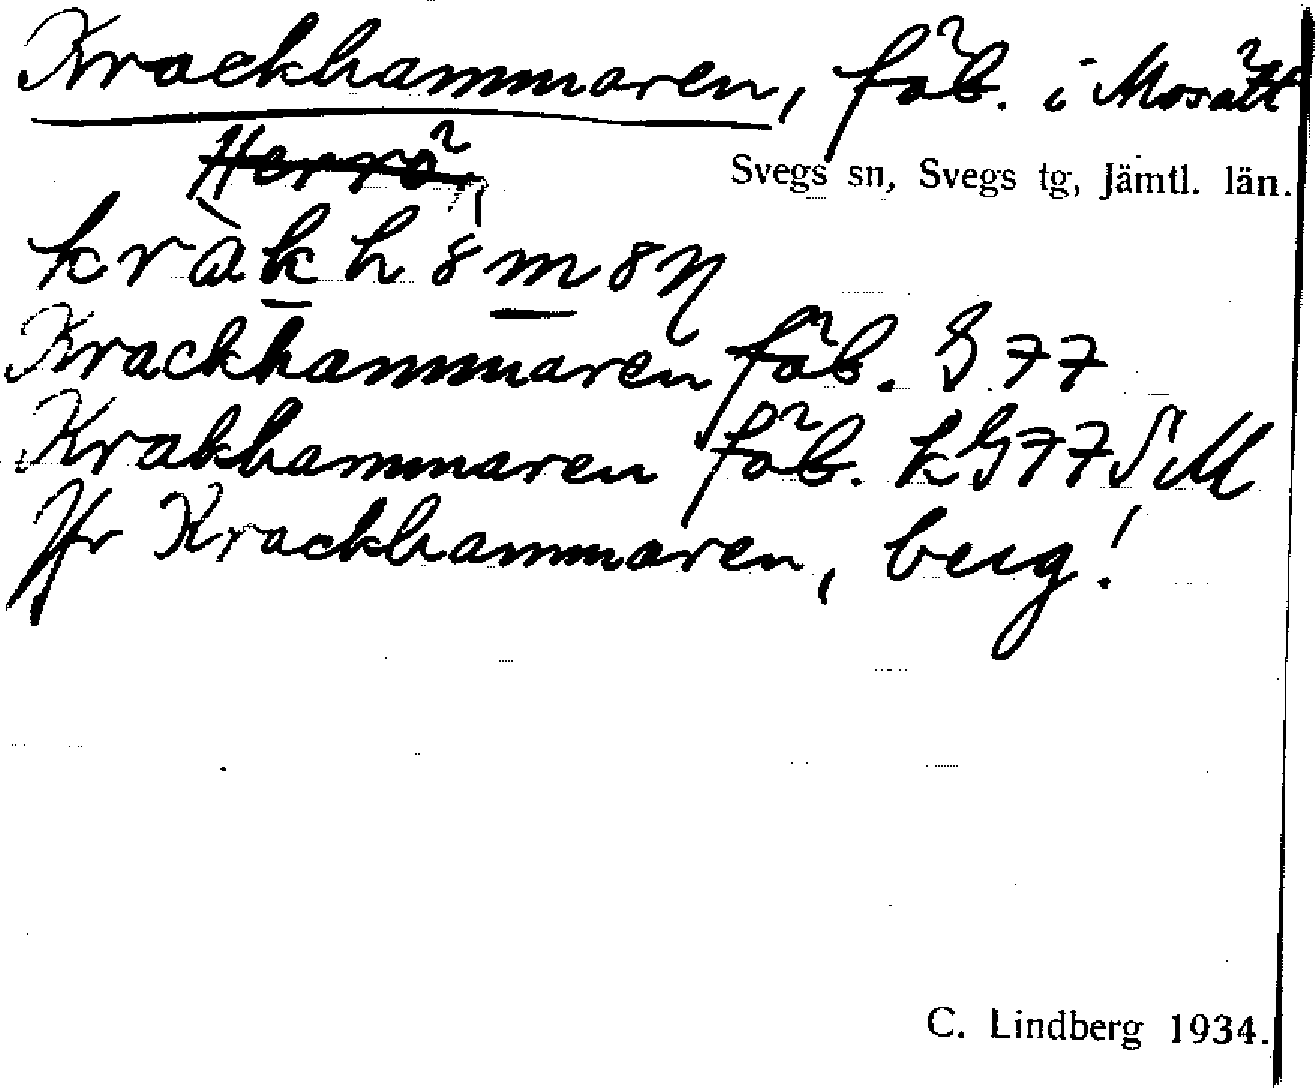 Krackhammaren, fäb. i Mosätt
Herrö,
Svegs sn, Svegs tg, Jämtl. län.
kràkh8m8ŋ
Krackhammaren fäb. G 77
Krakhammaren fäb. kG77SM
Jfr Krackhammaren, berg!
C. Lindberg 1934.